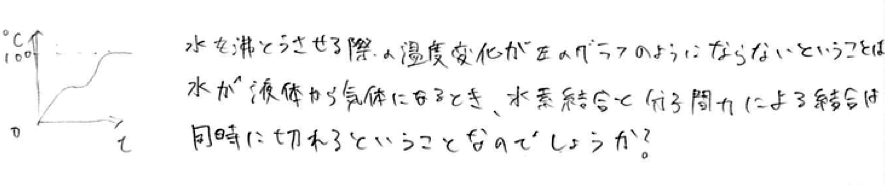 ℃
100
0
t
水を沸とうさせる際の温度変化が左のグラフのようにならないということは
水が液体から気体になるとき、水素結合と分子間力による結合は
同時に切れるということなのでしょうか?